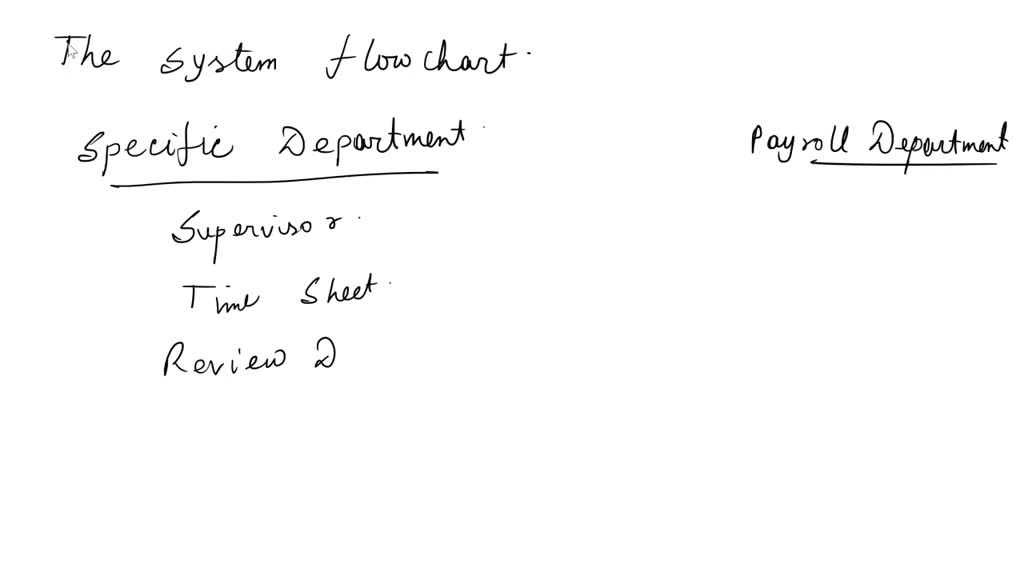 The system flowchart.
Specific Department
Payroll Department
Supervisor.
Time Sheet.
Review D